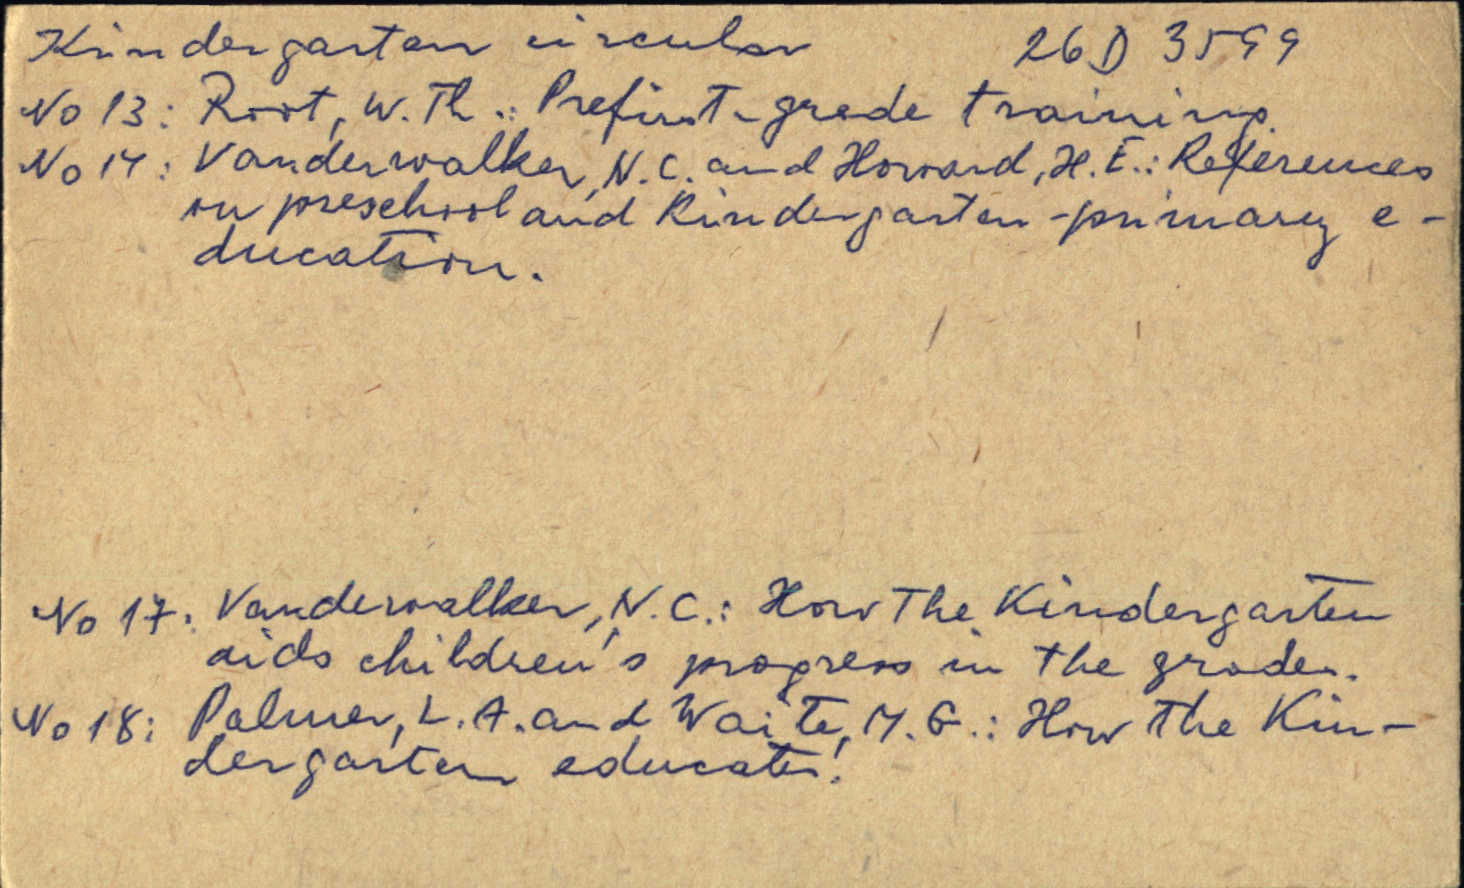 Kindergarten circular 26D 3599
No 13: Root, W. Th.: Prefirst-grade training.
No 14: Vanderwalker, N.C. and Howard, H.E.: References
on preschool and Kindergarten-primary e-
ducation.
No 17: Vanderwalker, N.C.: How the Kindergarten
aids children's progress in the grades.
No 18: Palmer, L.A. and Waite, M.G.: How the Kin-
dergarten educates!